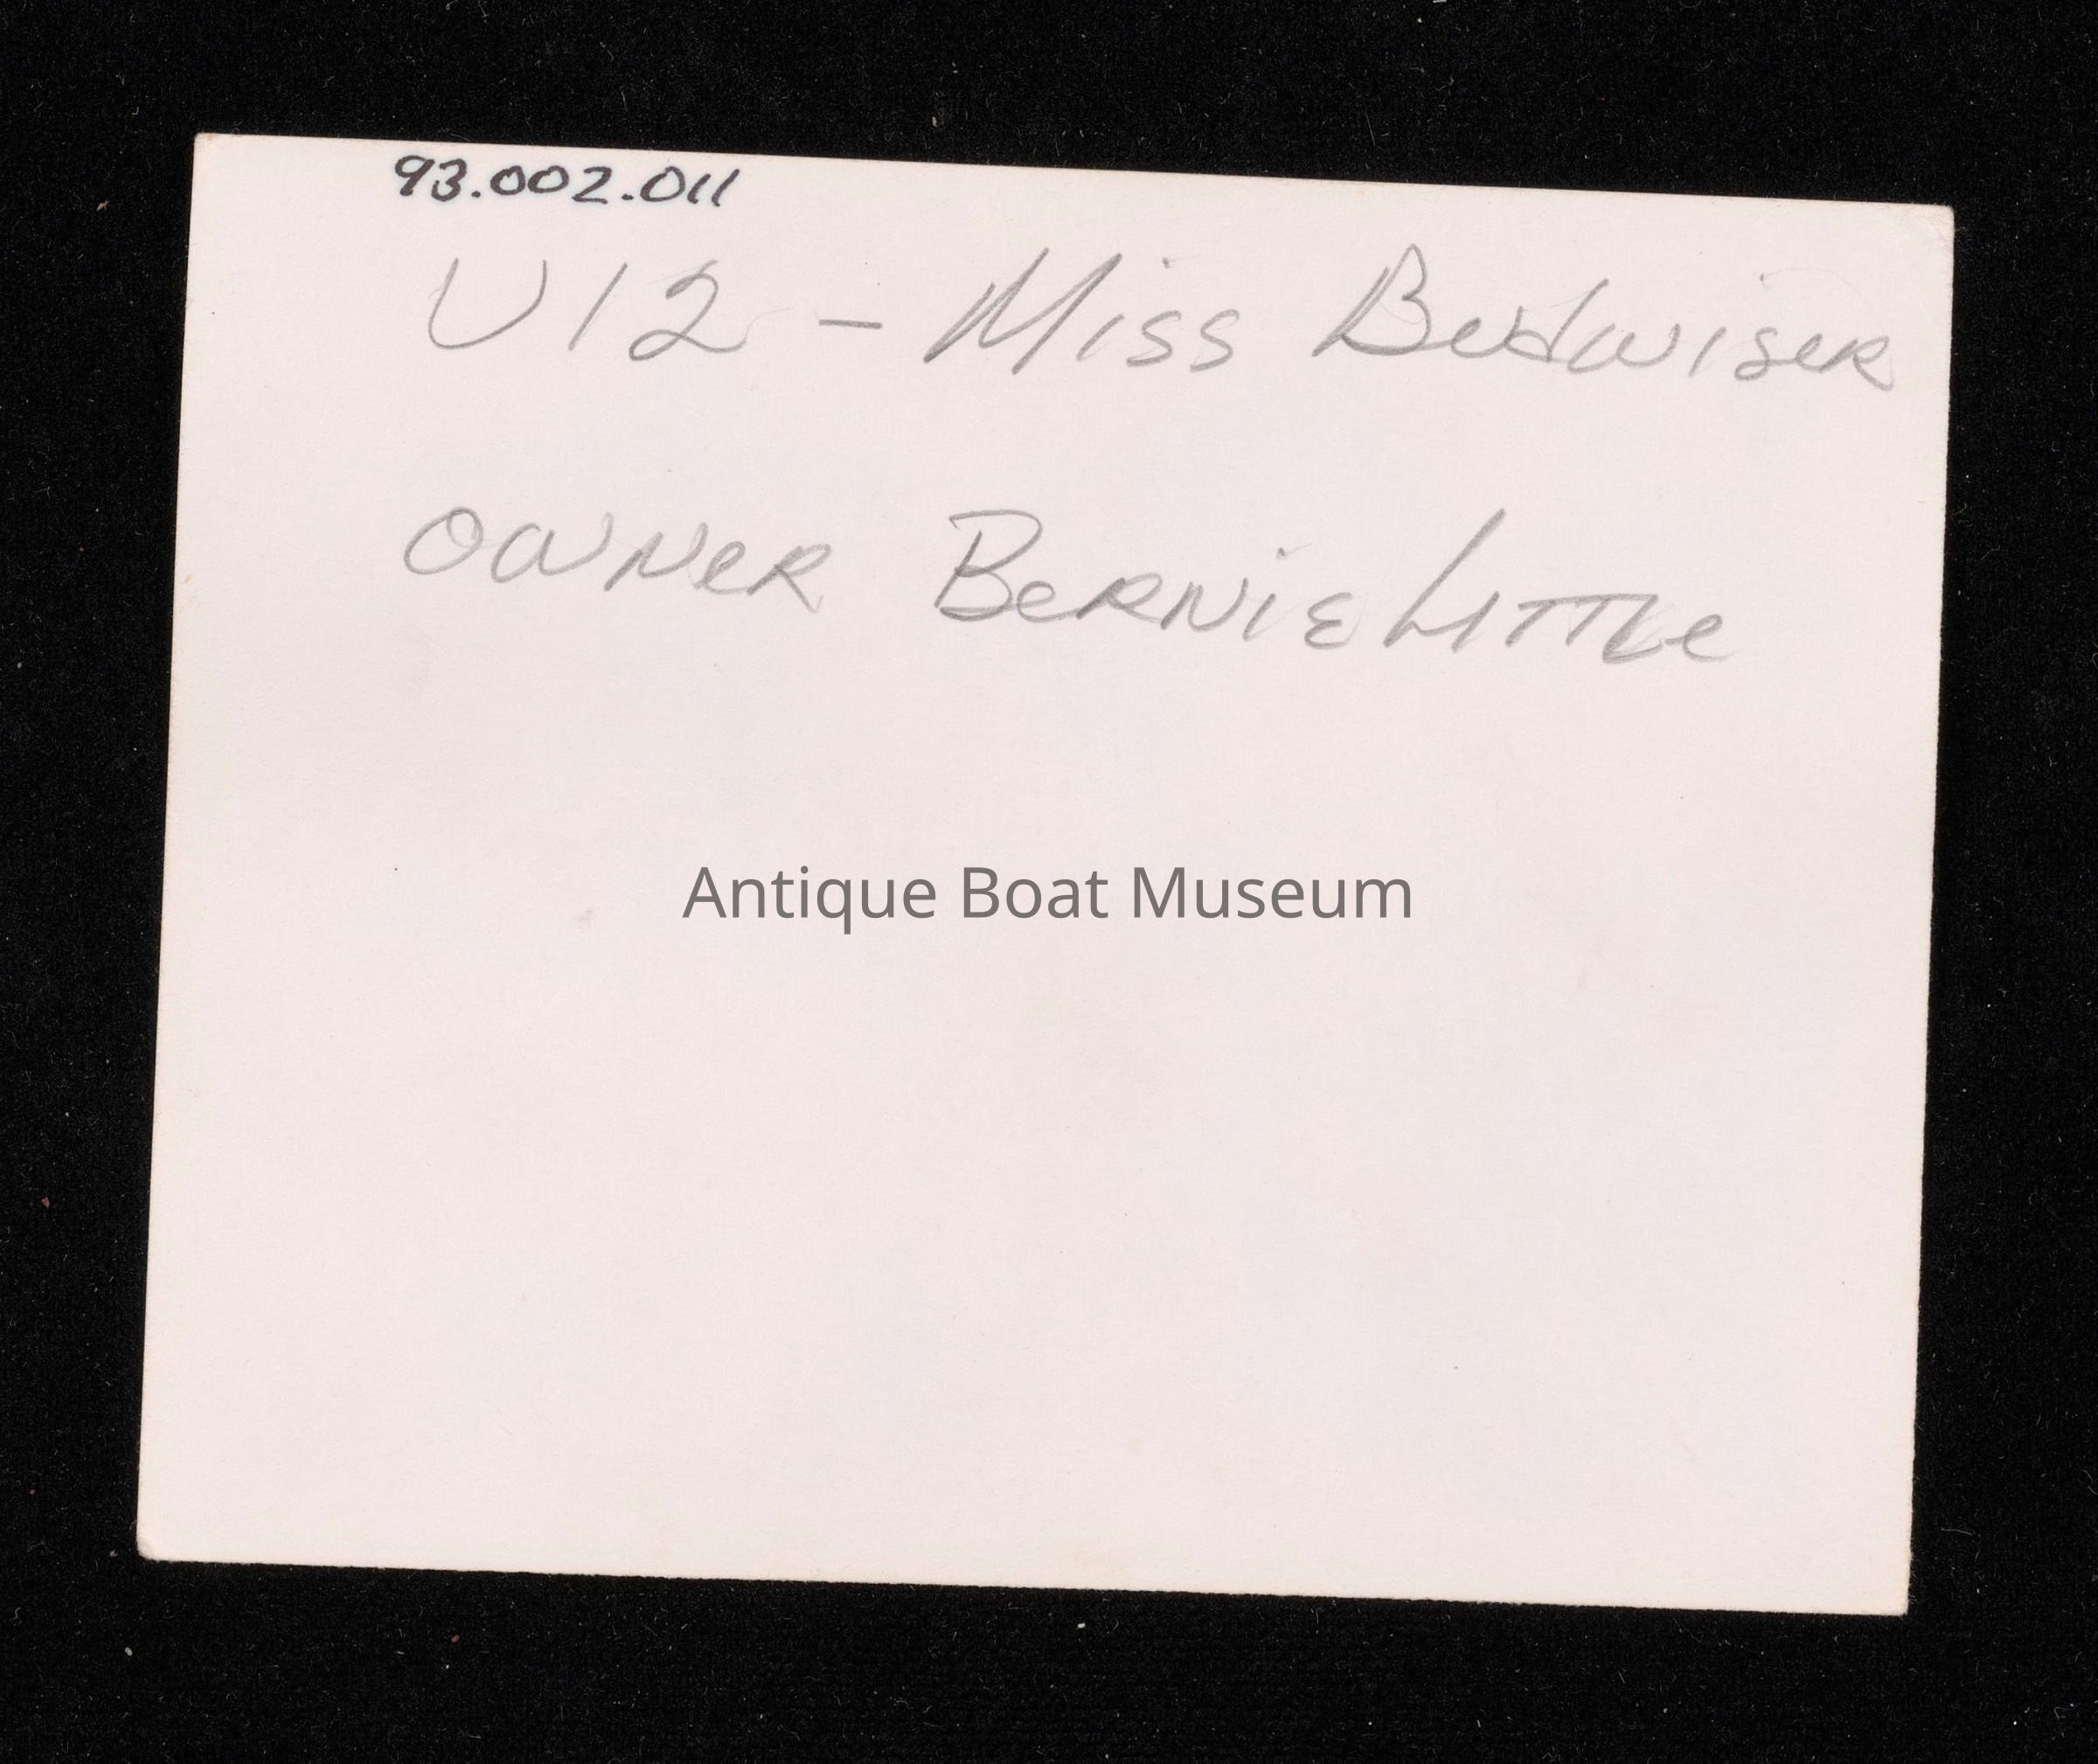 93.002.011
U12 - Miss Budwiser
OWNER BERNIE LITTLE
Antique Boat Museum